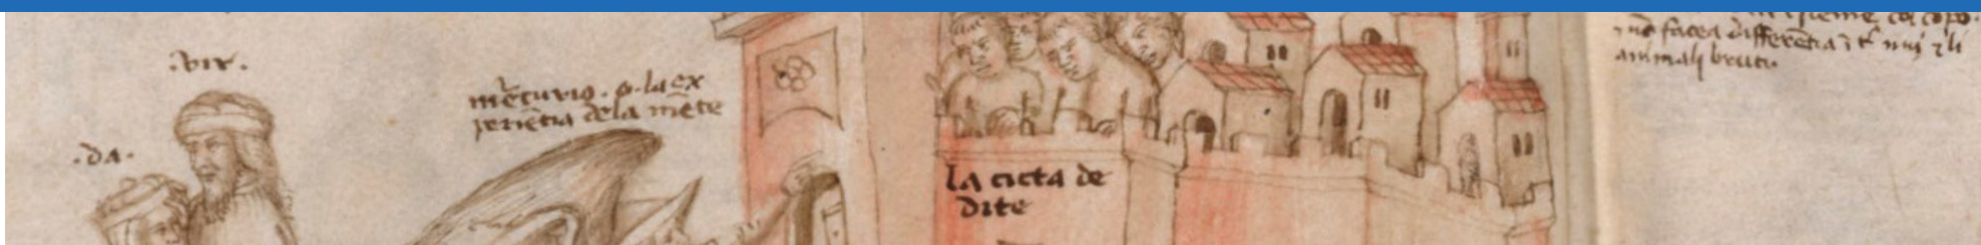 .vir.
.da.
mercurio. o. la ex
perientia dela mete
la cicta de
dite
facea differētia
animalj bruti